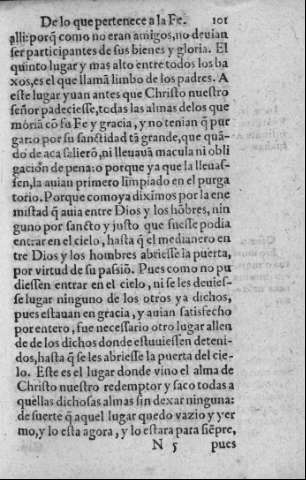 De lo que pertenece a la Fe. 101
alli: porq̃ como no eran amigos, no deuian
ser participantes de sus bienes y gloria. El
quinto lugar y mas alto entre todos los ba
xos, es el que llamã limbo de los padres. A
este lugar yuan antes que Christo nuestro
señor padeciesse, todas las almas delos que
moriã cõ su Fe y gracia, y no tenian q̃ pur
gar: o por su sanctidad tã grande, que quã-
do de aca salierõ, ni lleuauã macula ni obli
gacion de pena: o porque ya que la lleuas-
sen, la auian primero limpiado en el purga
torio. Porque como ya diximos por la ene
mistad q̃ auia entre Dios y los hõbres, nin
guno por sancto y justo que fuesse podia
entrar en el cielo, hasta q̃ el medianero en
tre Dios y los hombres abriesse la puerta,
por virtud de su passiõ. Pues como no pu
diessen entrar en el cielo, ni se les deuies-
se lugar ninguno de los otros ya dichos,
pues estauan en gracia, y auian satisfecho
por entero, fue necessario otro lugar allen
de de los dichos donde estuuiessen deteni-
dos, hasta q̃ se les abriesse la puerta del cie-
lo. Este es el lugar donde vino el alma de
Christo nuestro redemptor y saco todas a
quellas dichosas almas sin dexar ninguna:
de suerte q̃ aquel lugar quedo vazio y yer
mo, y lo esta agora, y lo estara para siẽpre,
N 5 pues